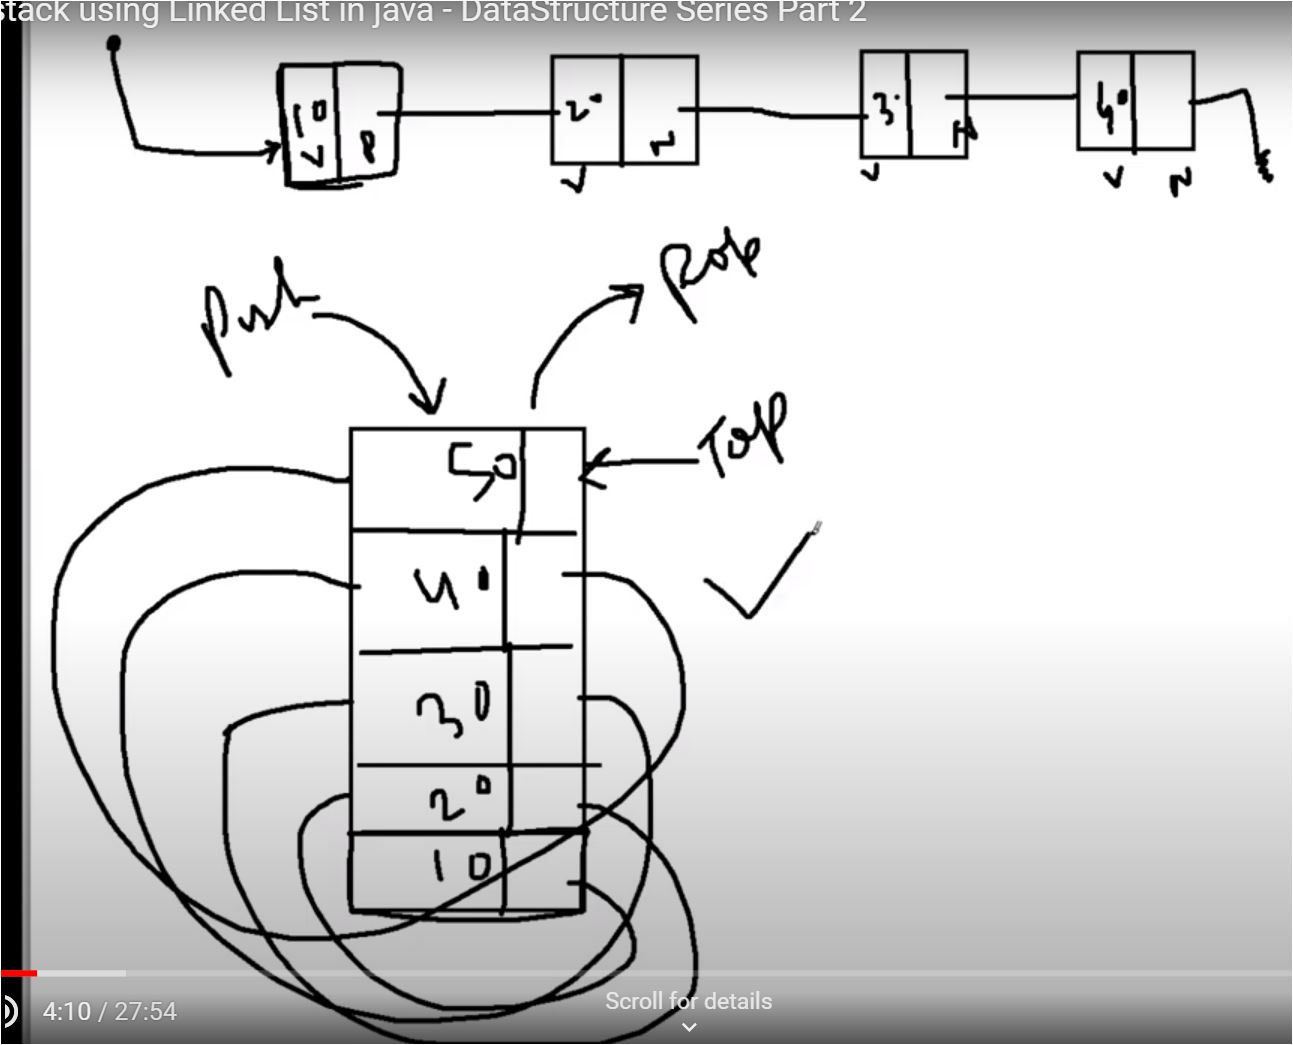 Stack using Linked List in java - DataStructure Series Part 2
10 20 30 40
V V V V N
Push Pop
Top
50
40
30
20
10
4:10 / 27:54
Scroll for details